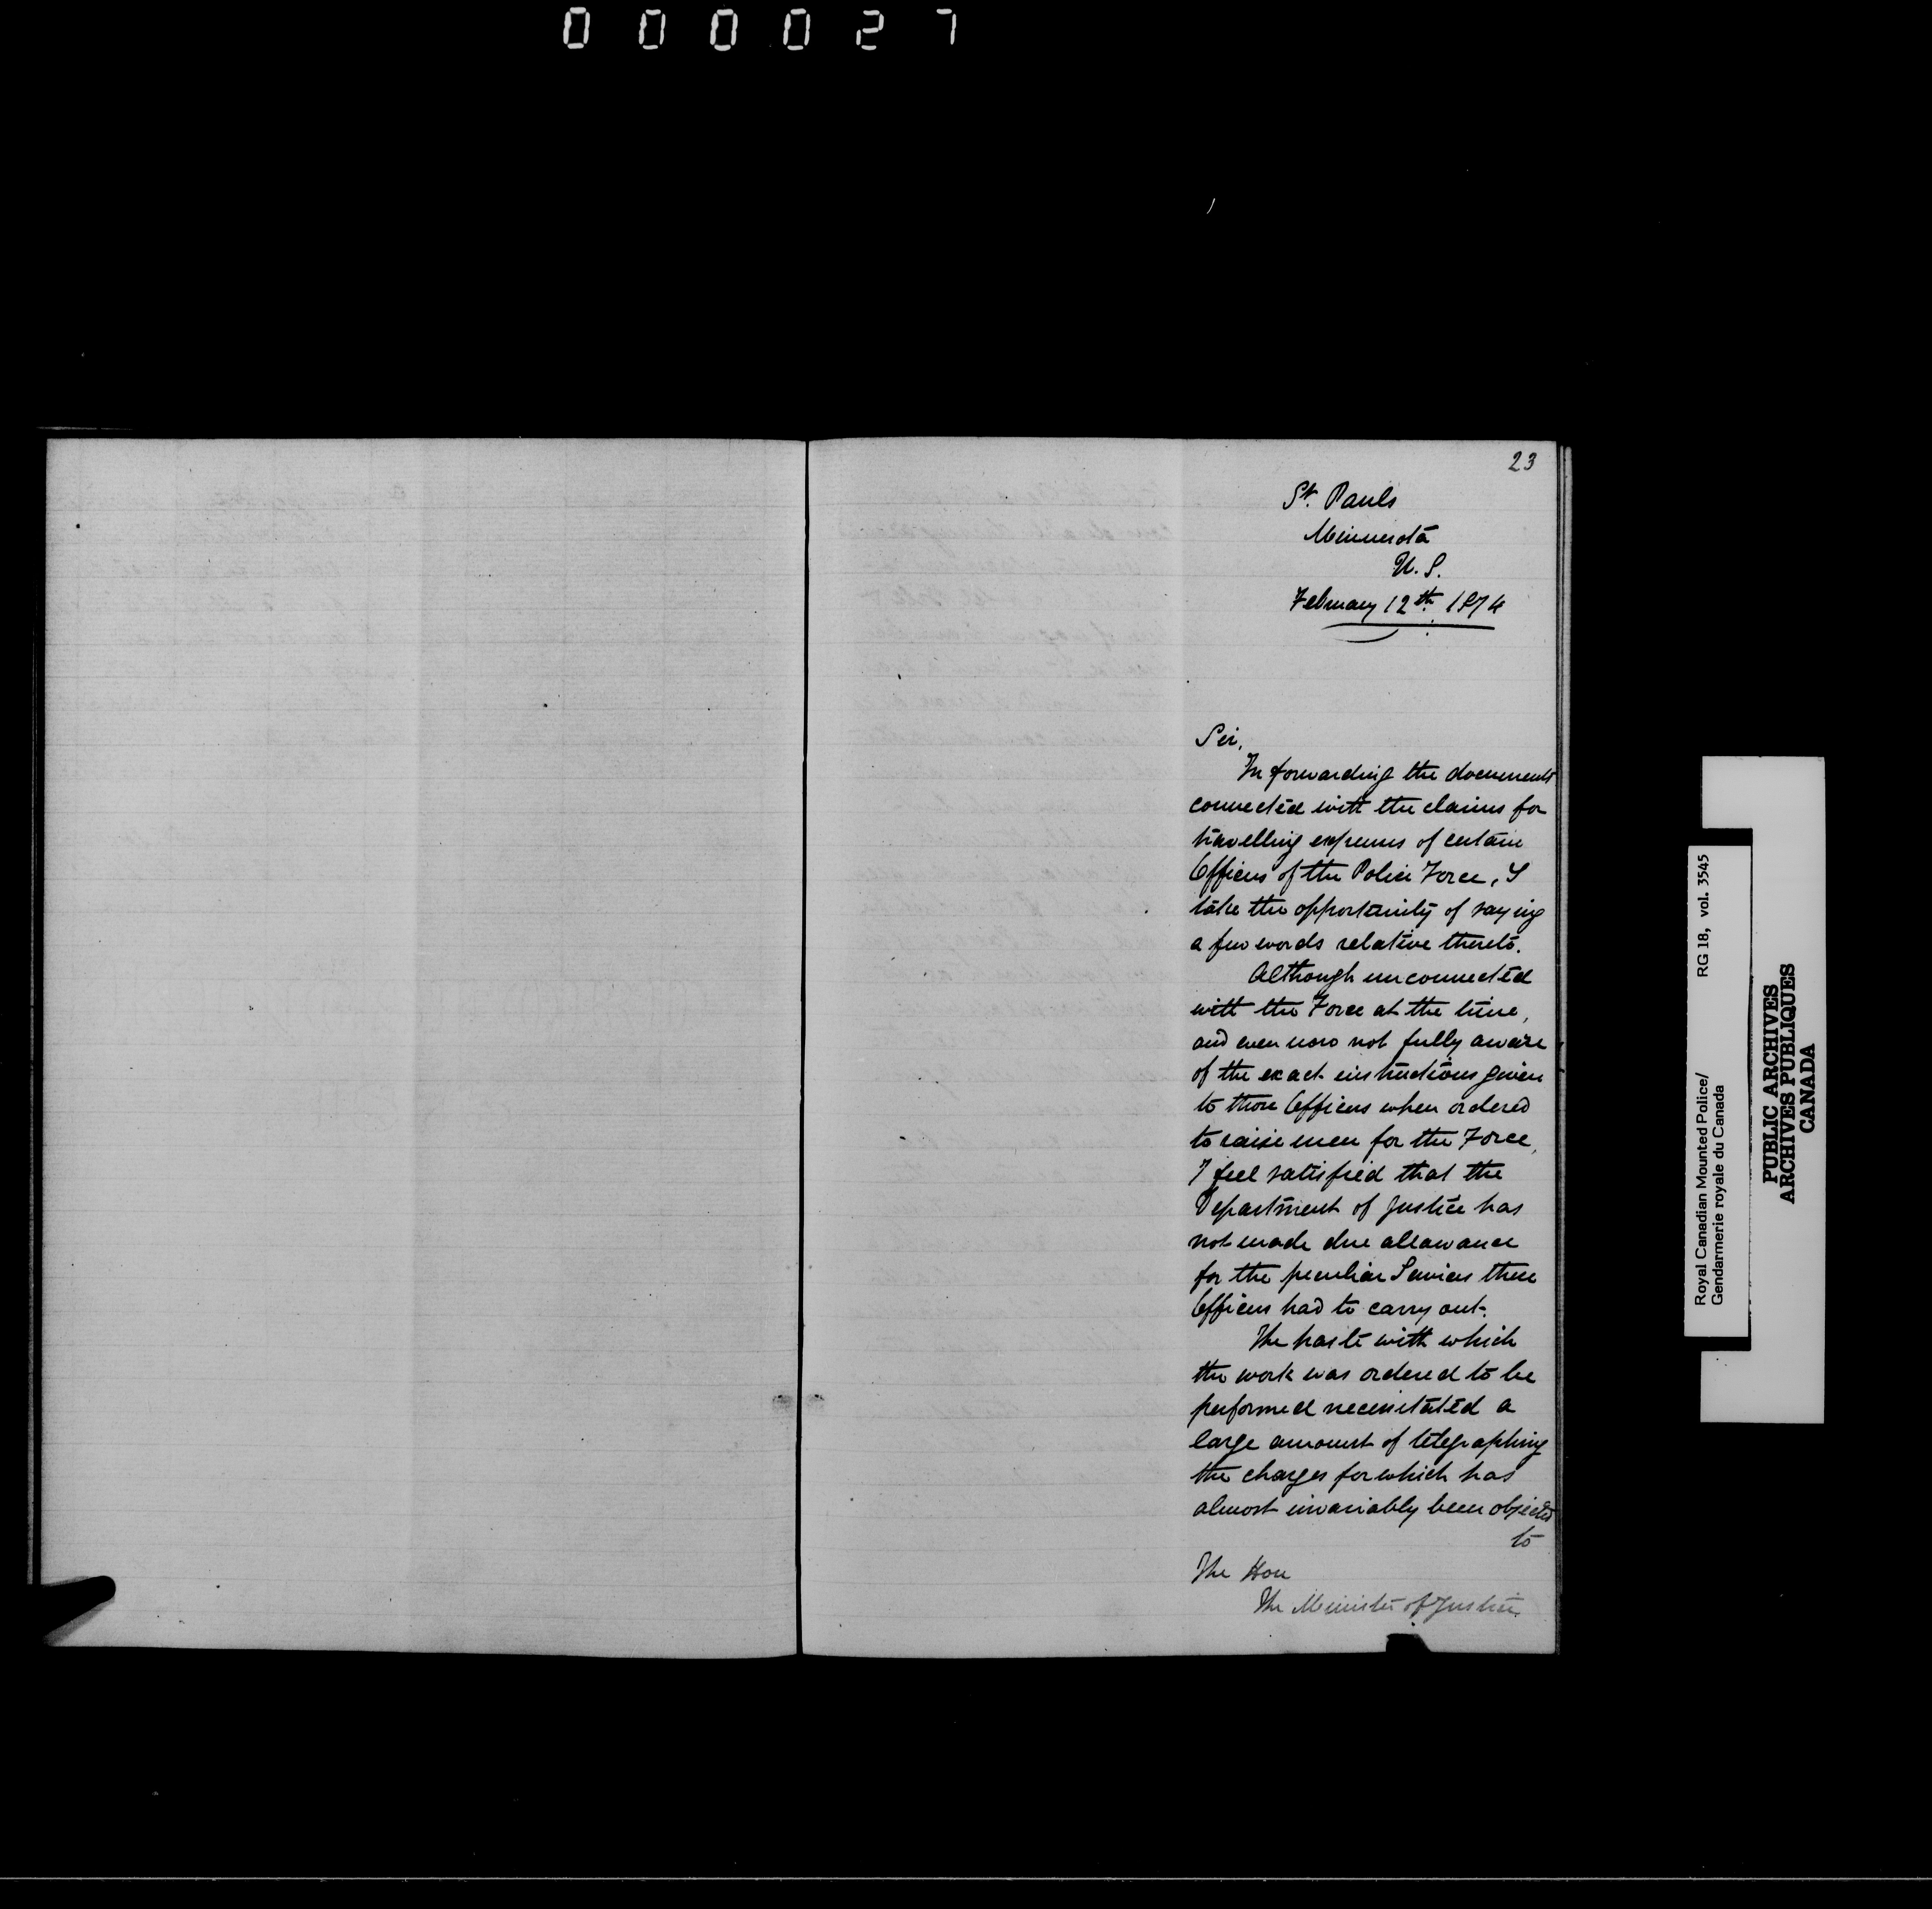 000027
23
St. Pauls
Minnesota
U.S.
February 12th. 1874
Sir,
In forwarding the documents
connected with the claims for
travelling expenses of certain
Officers of the Police Force, I
take the opportunity of saying
a few words relative thereto.
Although unconnected
with the Force at the time,
and even now not fully aware
of the exact instructions given
to those Officers when ordered
to raise men for the Force,
I feel satisfied that the
Department of Justice has
not made due allowance
for the peculiar Services these
Officers had to carry out.
The haste with which
the work was ordered to be
performed necessitated a
large amount of telegraphing
the charges for which has
almost invariably been objected
to
The Hon
The Minister of Justice.
Royal Canadian Mounted Police/
Gendarmerie royale du Canada
RG 18, vol. 3545
PUBLIC ARCHIVES
ARCHIVES PUBLIQUES
CANADA